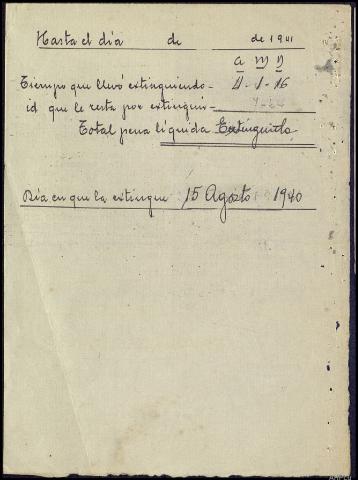 Hasta el día de de 1941
a m D
Tiempo que llevó extinguiendo - 4 - 1 - 16
id que le resta por extinguir -
Total pena líquida Extinguida
Día en que la extingue 15 Agosto 1940